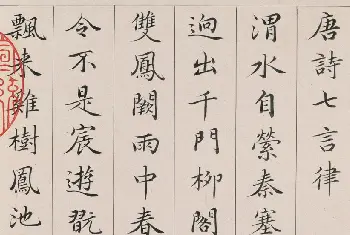 唐詩七言律
渭水自縈秦塞
逈出千門柳閣
雙鳳闕雨中春
令不是宸遊翫
飄来雞樹鳳池